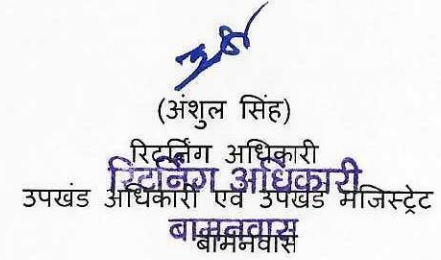 (अंशुल सिंह)
रिटर्निंग अधिकारी
रिटर्निंग अधिकारी
उपखंड अधिकारी एवं उपखंड मजिस्ट्रेट
बामनवास
बामनवास